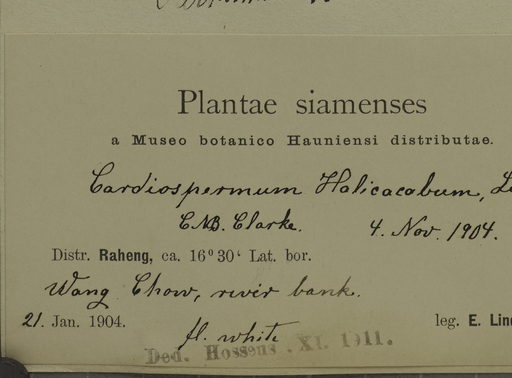 Plantae siamenses
a Museo botanico Hauniensi distributae.
Cardiospermum Halicacabum, L
C.B. Clarke. 4. Nov. 1904.
Distr. Raheng, ca. 16° 30‘ Lat. bor.
Wang Chow, river bank.
21. Jan. 1904. leg. E. Lin
fl. white
Ded. Hosseus . XI. 1911.